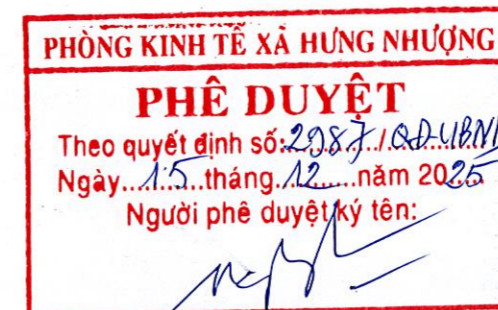 PHÒNG KINH TẾ XÃ HƯNG NHƯỢNG
PHÊ DUYỆT
Theo quyết định số:2987/QĐ-UBND
Ngày...15...tháng...12...năm 2025
Người phê duyệt ký tên: